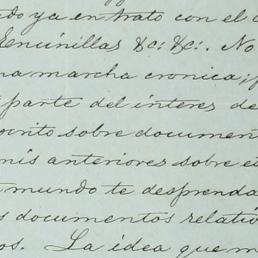 do ya en trato con el c
Encinillas &c: &c:. No
na marcha cronica;
parte del interes de
crito sobre documen
mis anteriores sobre e
mundo te desprenda
s documentos relati
os. La idea que m